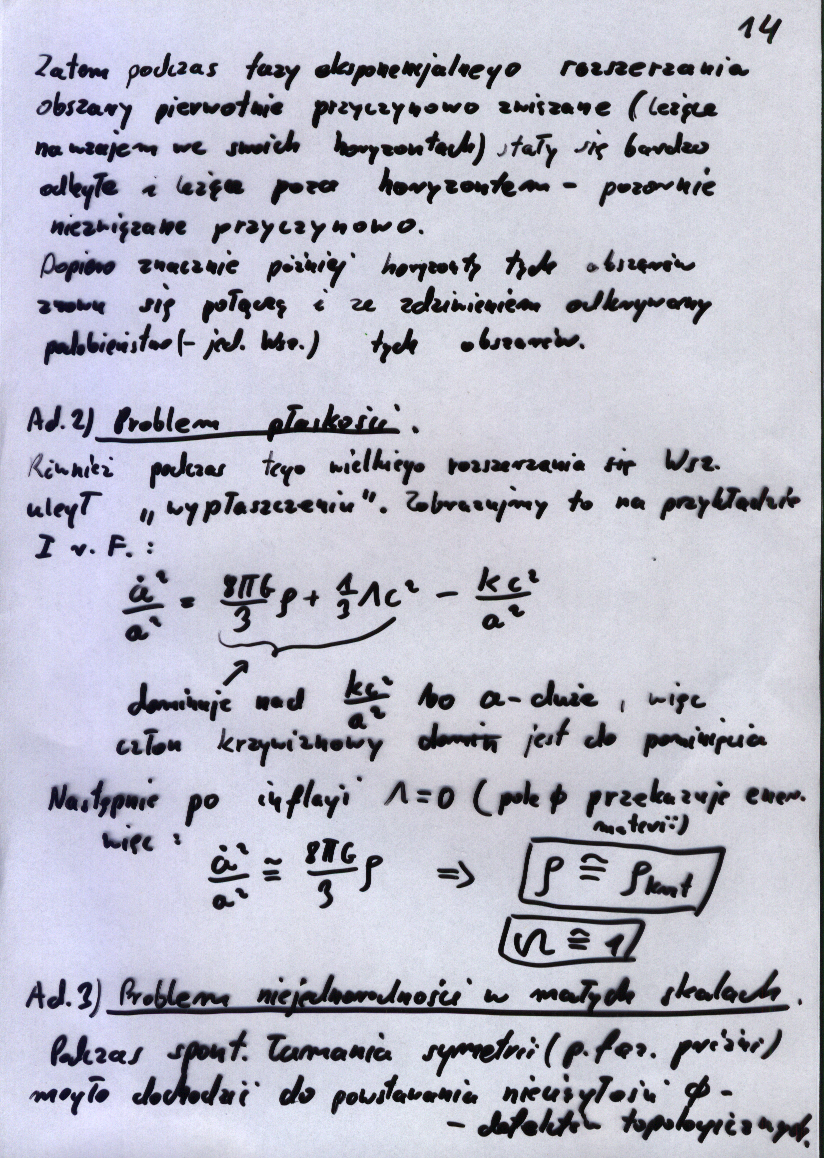 14
Zatem podczas fazy eksponencjalnego rozszerzania
obszary pierwotnie przyczynowo związane (leżące
nawzajem we swoich horyzontach) stały się bardzo
odległe i leżące poza horyzontem - pozornie
niezwiązane przyczynowo.
Dopiero znacznie później horyzonty tych obszarów
znowu się połączą i ze zdziwieniem odkrywamy
podobieństwo (- jed. Wsz.) tych obszarów.
Ad. 2) Problem płaskości.
Również podczas tego wielkiego rozszerzania się Wsz.
uległ „wypłaszczeniu". Zobrazujmy to na przykładzie
I r. F. :
ȧ²/a² = 8πG/3 ρ + 1/3 Λc² - kc²/a²
dominuje nad kc²/a² bo a - duże, więc
człon krzywiznowy jest do pominięcia
Następnie po inflacji Λ = 0 (pole φ przekazuje ener.
materii)
więc :
ȧ²/a² ≅ 8πG/3 ρ => ρ ≅ ρkryt
Ω ≅ 1
Ad. 3) Problem niejednorodności w małych skalach.
Podczas spont. łamania symetrii (p. faz. próżni)
mogło dochodzić do powstawania nieciągłości φ -
- defektów topologicznych.